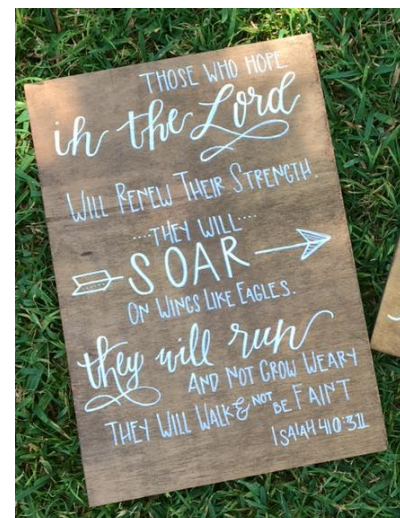 THOSE WHO HOPE
in the Lord
WILL RENEW THEIR STRENGTH.
....THEY WILL....
SOAR
ON WINGS LIKE EAGLES.
they will run
AND NOT GROW WEARY
THEY WILL WALK & NOT BE FAINT
ISAIAH 40:31